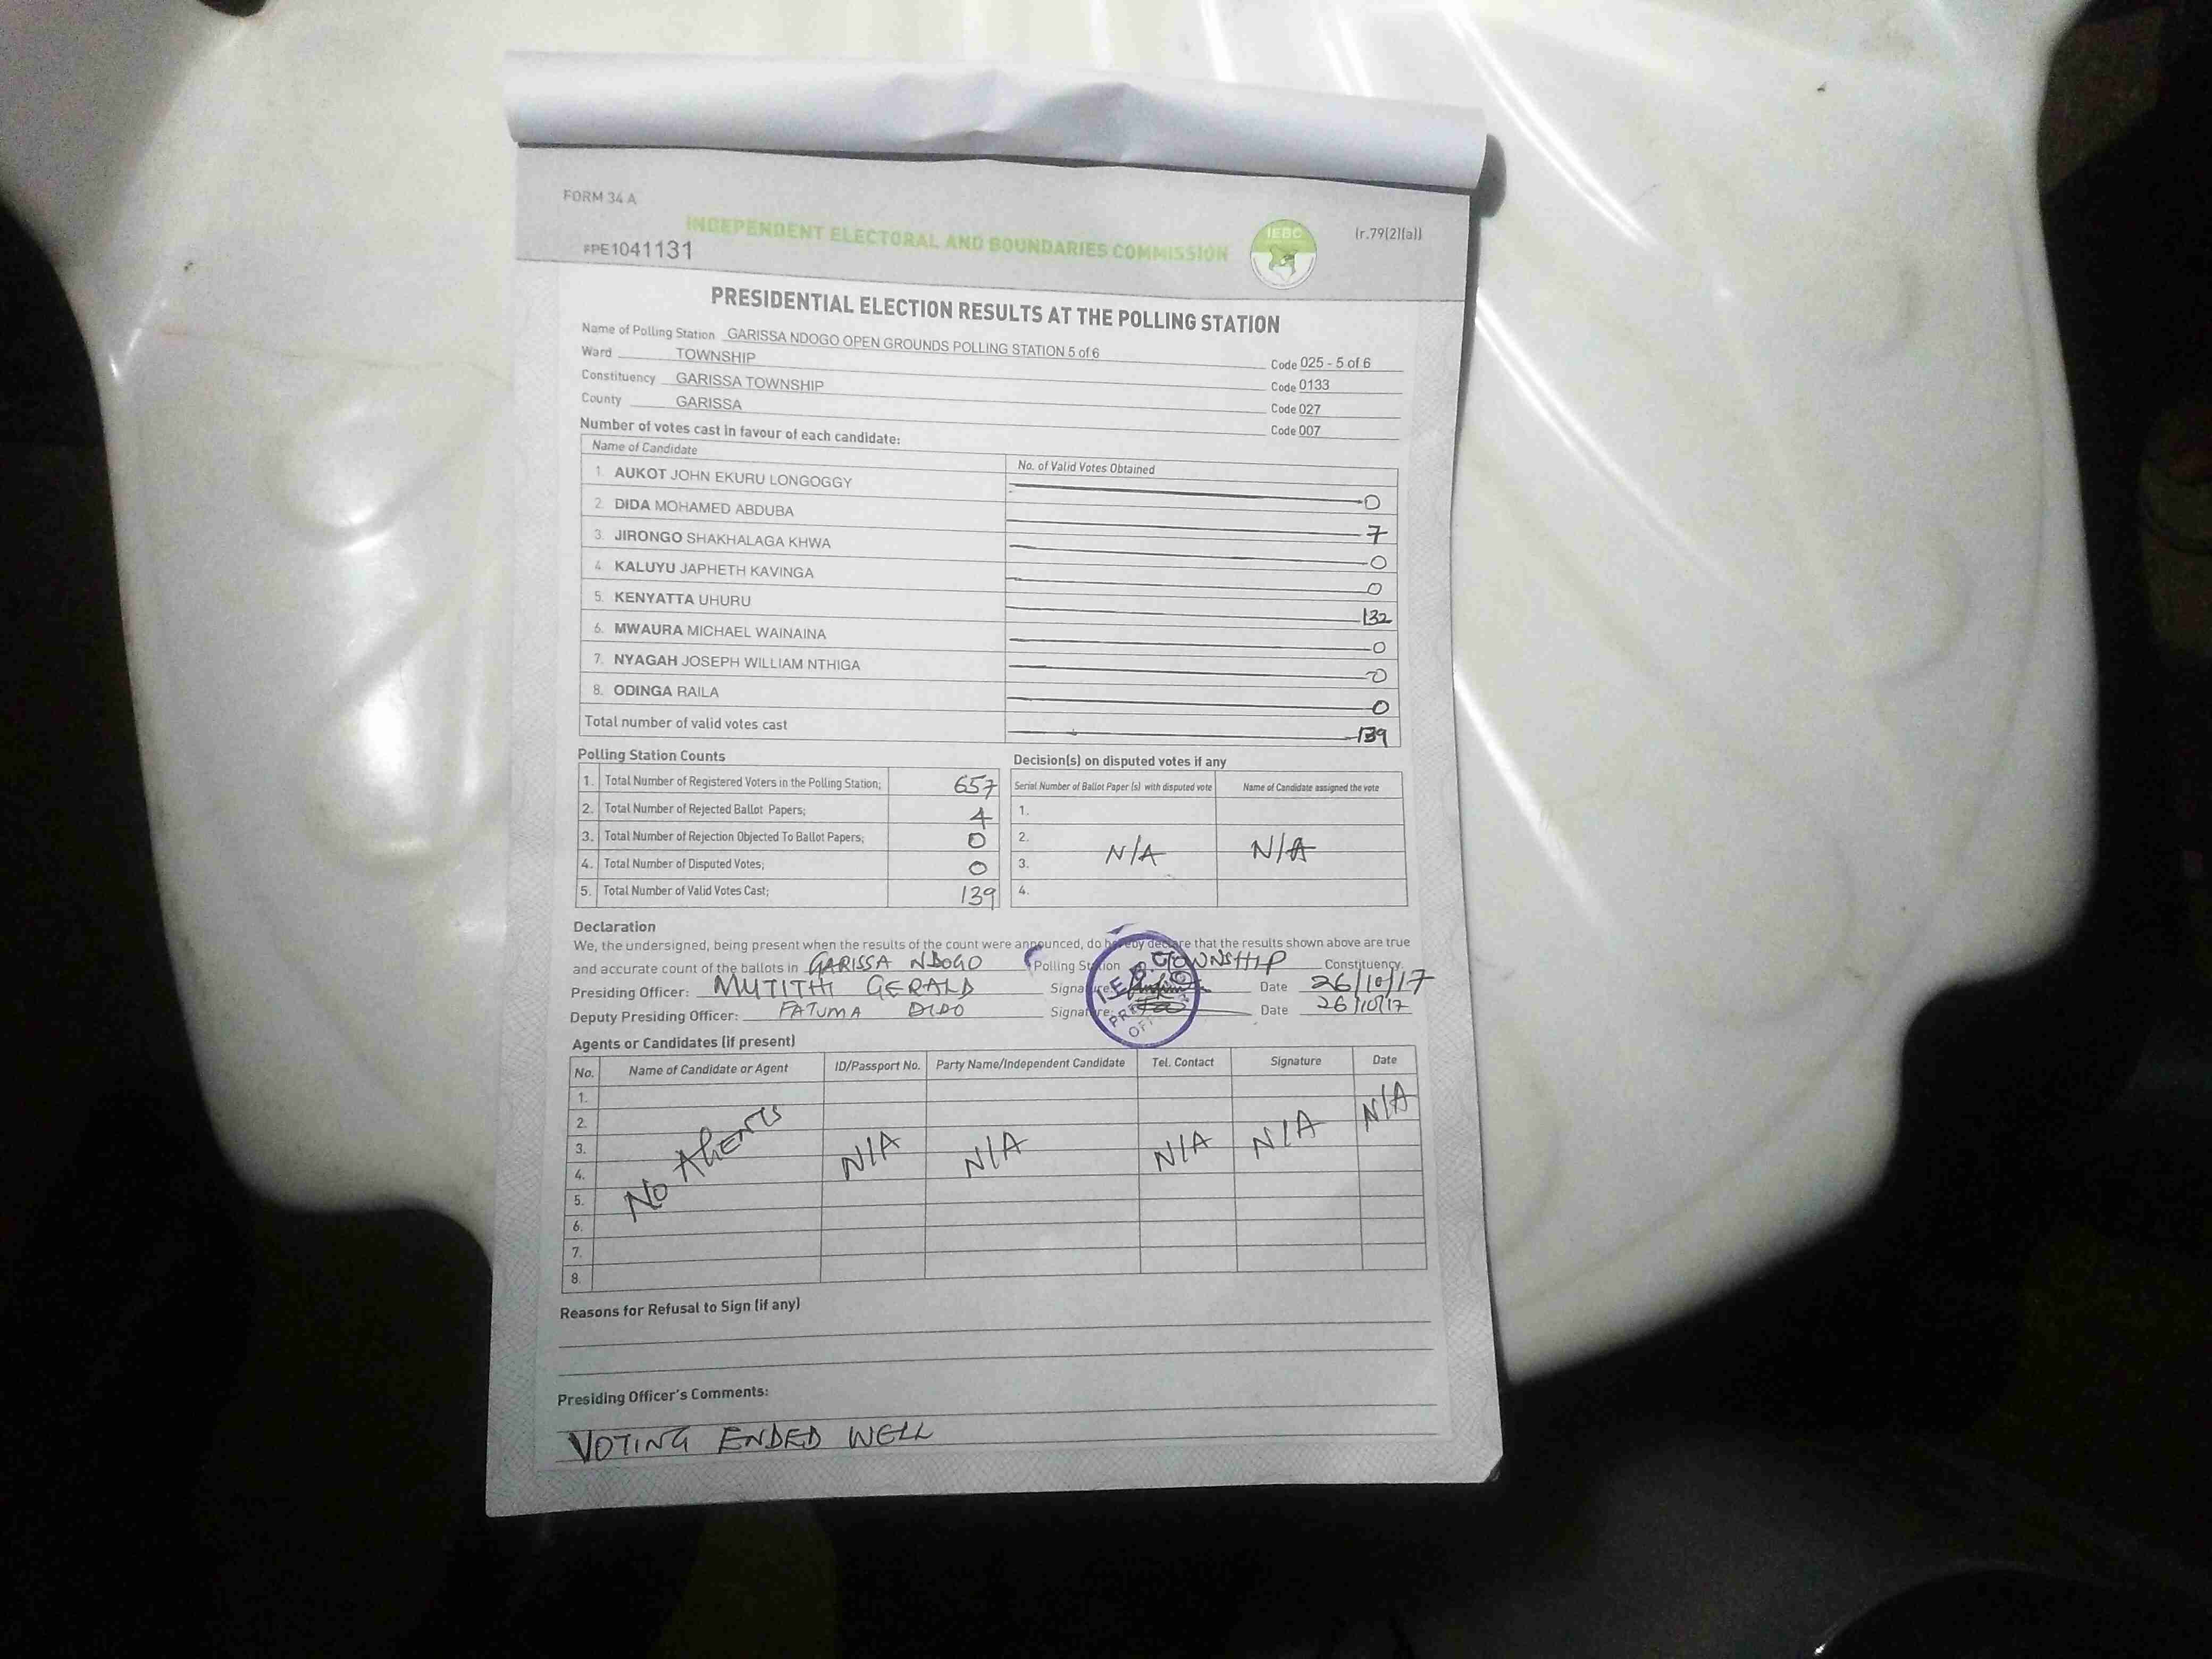 FORM 34 A
INDEPENDENT ELECTORAL AND BOUNDARIES COMMISSION
IEBC
(r.79(2)(a))
#PE1041131
PRESIDENTIAL ELECTION RESULTS AT THE POLLING STATION
Name of Polling Station GARISSA NDOGO OPEN GROUNDS POLLING STATION 5 of 6 Code 025 - 5 of 6
Ward TOWNSHIP Code 0133
Constituency GARISSA TOWNSHIP Code 027
County GARISSA Code 007
Number of votes cast in favour of each candidate:
Name of Candidate No. of Valid Votes Obtained
1. AUKOT JOHN EKURU LONGOGGY 0
2. DIDA MOHAMED ABDUBA 7
3. JIRONGO SHAKHALAGA KHWA 0
4. KALUYU JAPHETH KAVINGA 0
5. KENYATTA UHURU 132
6. MWAURA MICHAEL WAINAINA 0
7. NYAGAH JOSEPH WILLIAM NTHIGA 0
8. ODINGA RAILA 0
Total number of valid votes cast 139
Polling Station Counts
1. Total Number of Registered Voters in the Polling Station; 657
2. Total Number of Rejected Ballot Papers; 4
3. Total Number of Rejection Objected To Ballot Papers; 0
4. Total Number of Disputed Votes; 0
5. Total Number of Valid Votes Cast; 139
Decision(s) on disputed votes if any
Serial Number of Ballot Paper (s) with disputed vote Name of Candidate assigned the vote
1.
2.
N/A N/A
3.
4.
Declaration
We, the undersigned, being present when the results of the count were announced, do hereby declare that the results shown above are true
and accurate count of the ballots in GARISSA NDOGO Polling Station TOWNSHIP Constituency.
Presiding Officer: MUTITHI GERALD Signature: Date 26/10/17
Deputy Presiding Officer: FATUMA DIDO Signature: Date 26/10/17
Agents or Candidates (if present)
No. Name of Candidate or Agent ID/Passport No. Party Name/Independent Candidate Tel. Contact Signature Date
1.
2.
3.
4.
5.
6.
7.
8.
NO AGENTS N/A N/A N/A N/A N/A
Reasons for Refusal to Sign (if any)
Presiding Officer's Comments:
VOTING ENDED WELL